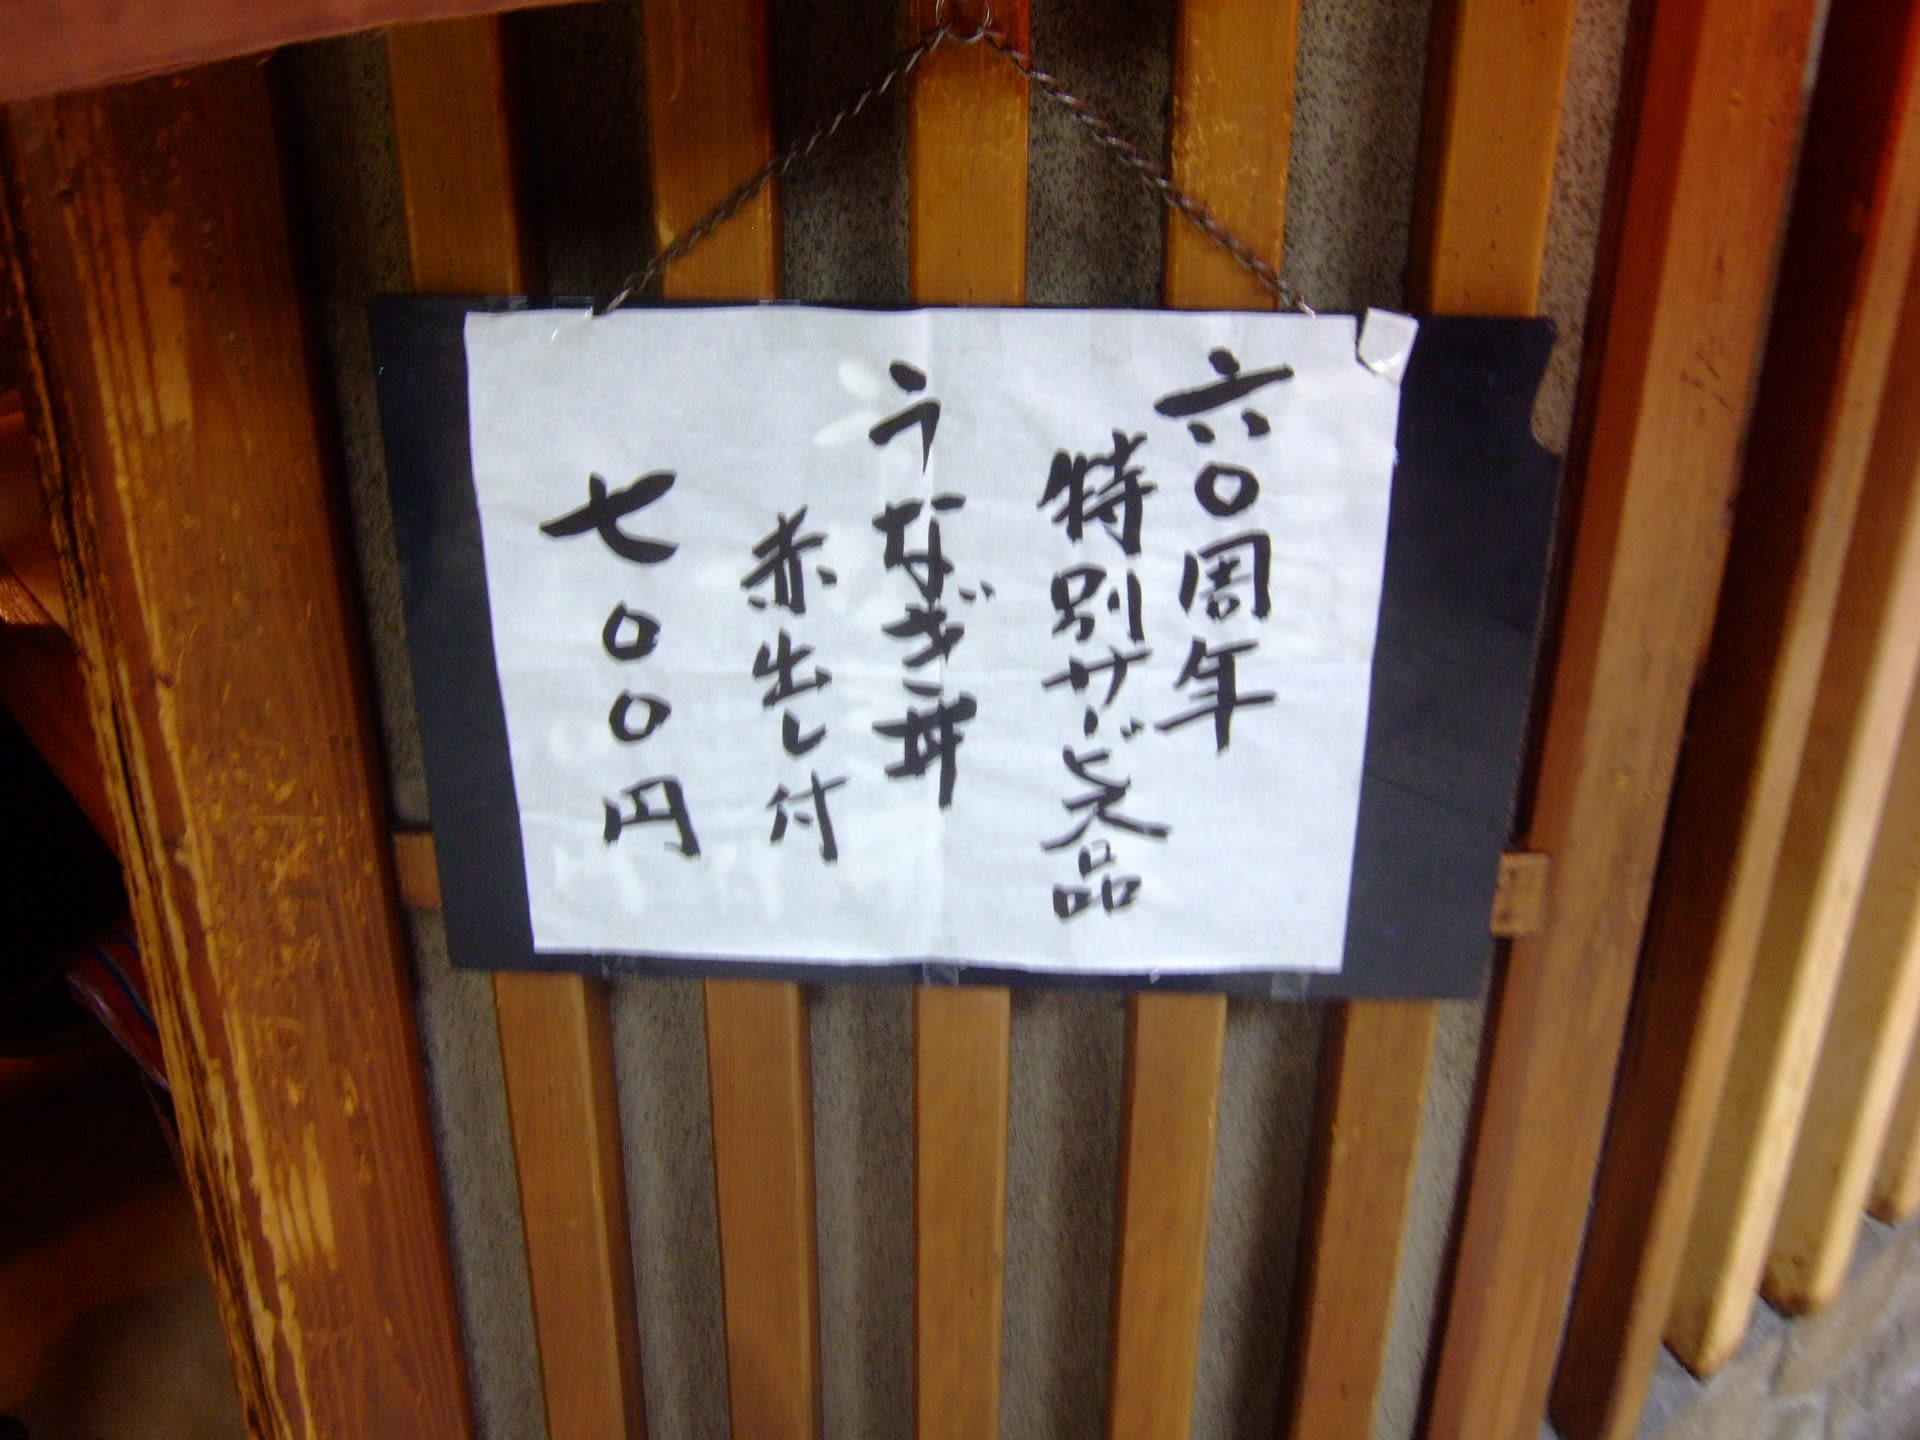 六〇周年
特別サービス品
うなぎ丼
赤出し付
七〇〇円